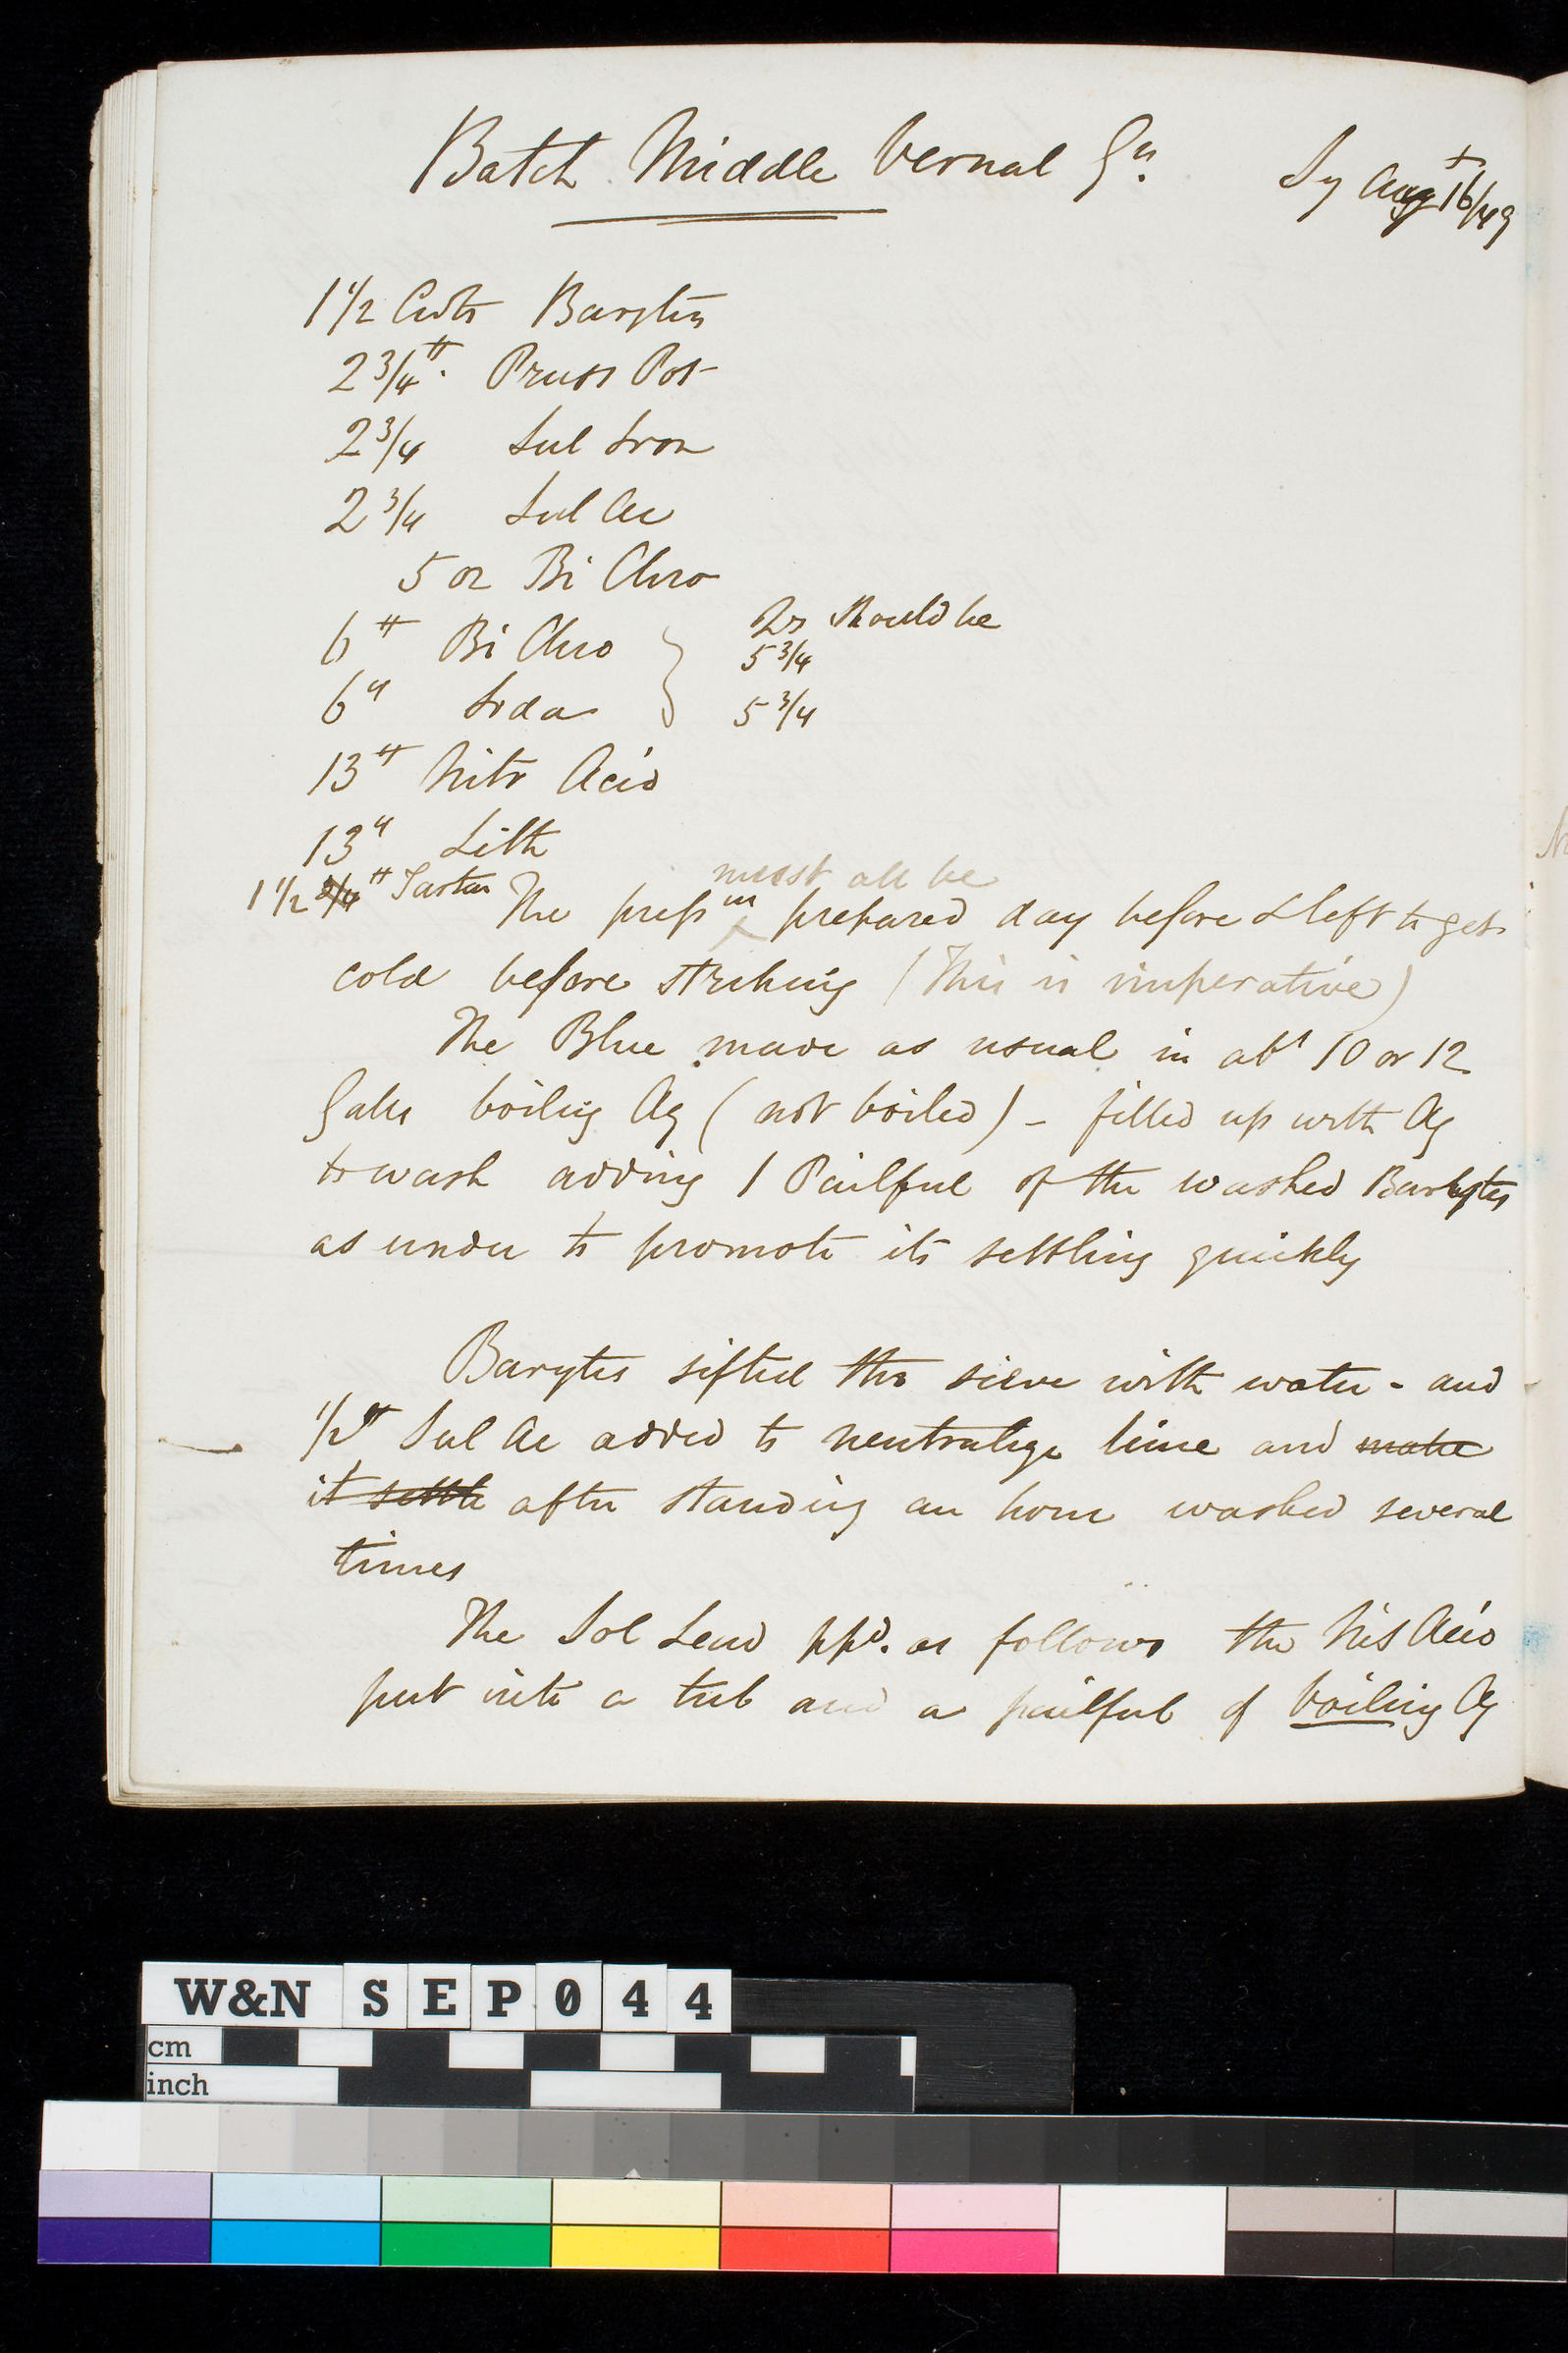 Batch Middle Vernal Gn.
Sy Augt 16/49
1 1/2 Cwts Barytes
2 3/4 #. Pruss Pot
2 3/4 Sul Iron
2 3/4 Sul Ac
5 oz Bi Chro
6 # Bi Chro
6 " Soda
should be
5 3/4
5 3/4
13 # Nitr Acid
13 " Lith
must all be
1 1/2 3/4 # Tartar The prepns prepared day before & left to get
cold before striking (This is imperative)
The Blue made as usual in abt 10 or 12
Galls boiling Aq (not boiled) - filled up with Aq
to wash adding 1 Pailful of the washed Barytes
as under to promote its settling quickly
Barytes sifted thro sieve with water - and
1/2 # Sul Ac added to neutralize lime and make
it settle after standing an hour washed several
times
The Sol Lead ppd. as follows the Nit Acid
put into a tub and a pailful of boiling Aq
W&N SEP044
cm
inch